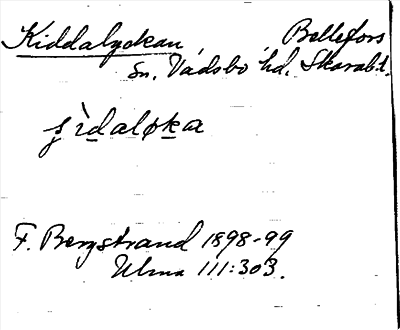 Kiddalyckan Bellefors
Sn. Vadsbo hd. Skarab.l.
ʝìdaløka
F. Bergstrand 1898-99
Ulma 111:303.